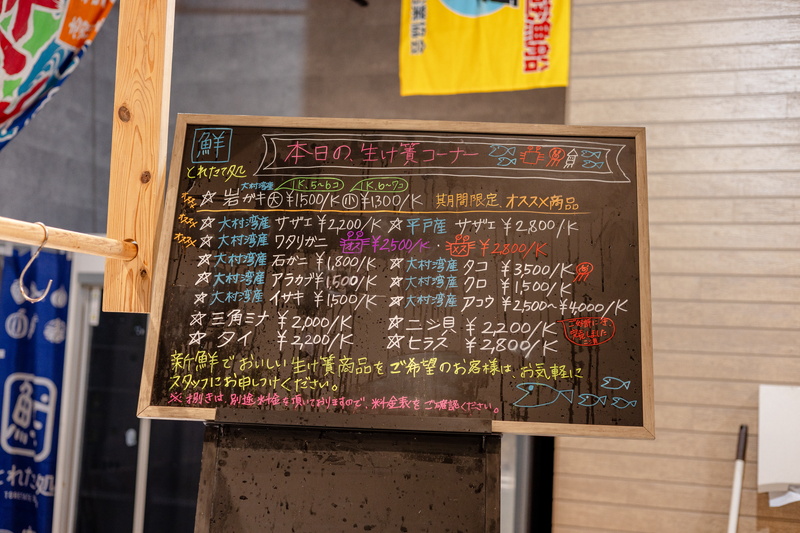 お魚船
鮮
本日の生け簀コーナー
とれたて処
大村湾産 1K.5~6コ 1K.6~7コ
☆岩ガキ 大 ¥1500/K 小 ¥1300/K 期間限定、オススメ商品
☆大村湾産 サザエ ¥2,200/K ☆平戸産 サザエ ¥2,800/K
☆大村湾産 ワタリガニ ¥2500/K・¥2,800/K
☆大村湾産 石ガニ ¥1,800/K ☆大村湾産 タコ ¥3,500/K
☆大村湾産 アラカブ ¥1,500/K ☆大村湾産 クロ ¥1,500/K
☆大村湾産 イサキ ¥1,500/K ☆大村湾産 アコウ ¥2,500~¥4,000/K
☆三角ミナ ¥2,000/K ☆ニシ貝 ¥2,200/K
☆タイ ¥2,200/K ☆ヒラス ¥2,800/K
新鮮でおいしい生け簀商品をご希望のお客様は、お気軽に
スタッフにお申しつけください。
※捌きは、別途料金を頂いておりますので、料金表をご確認ください。
とれたて処